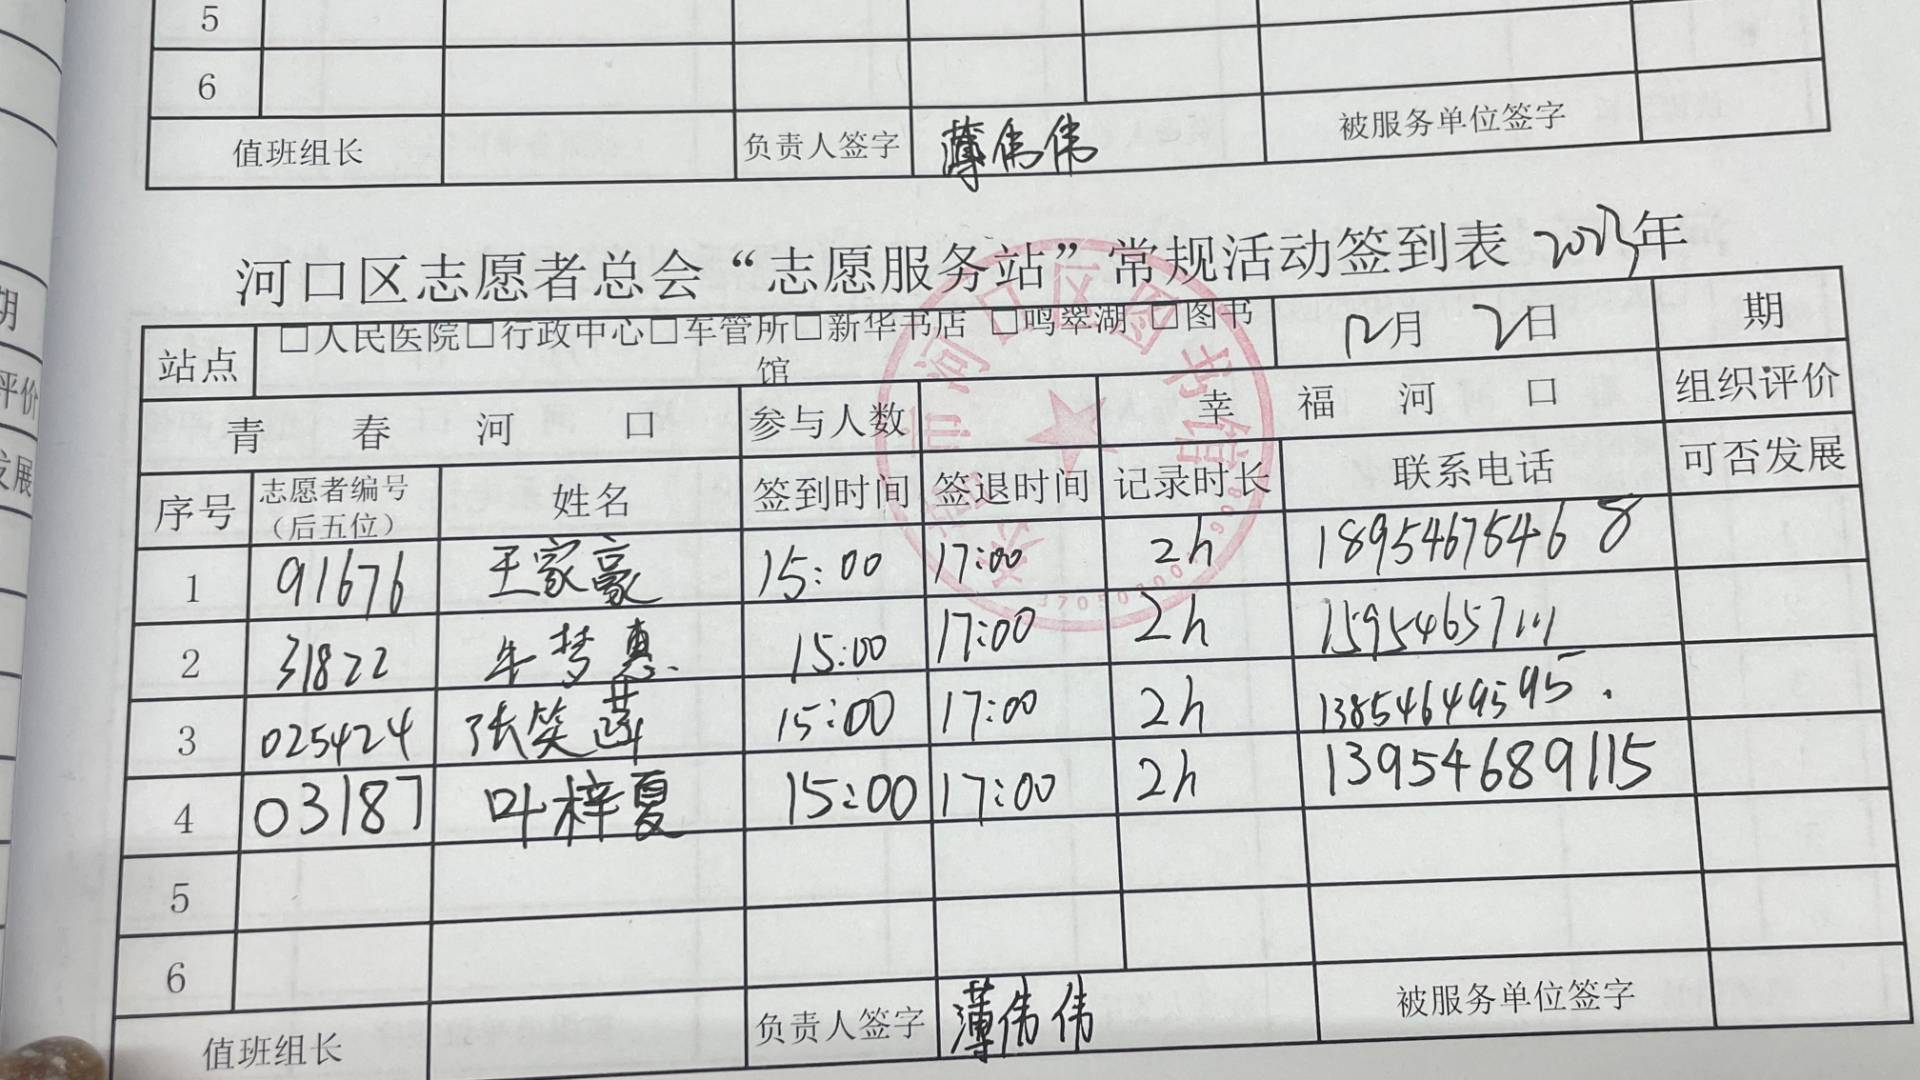 5
6
值班组长 负责人签字 薄伟伟 被服务单位签字
河口区志愿者总会“志愿服务站”常规活动签到表 2023年
站点 □人民医院□行政中心□车管所□新华书店 □鸣翠湖 □图书馆 12月 2日 期
青 春 河 口 参与人数 幸 福 河 口 组织评价
序号 志愿者编号（后五位） 姓名 签到时间 签退时间 记录时长 联系电话 可否发展
1 91676 王家豪 15:00 17:00 2h 18954675468
2 31822 牛梦惠 15:00 17:00 2h 15954657111
3 025424 张笑菡 15:00 17:00 2h 13854649595
4 03187 叶梓夏 15:00 17:00 2h 13954689115
5
6
值班组长 负责人签字 薄伟伟 被服务单位签字
期
评价
发展
河口区图书馆